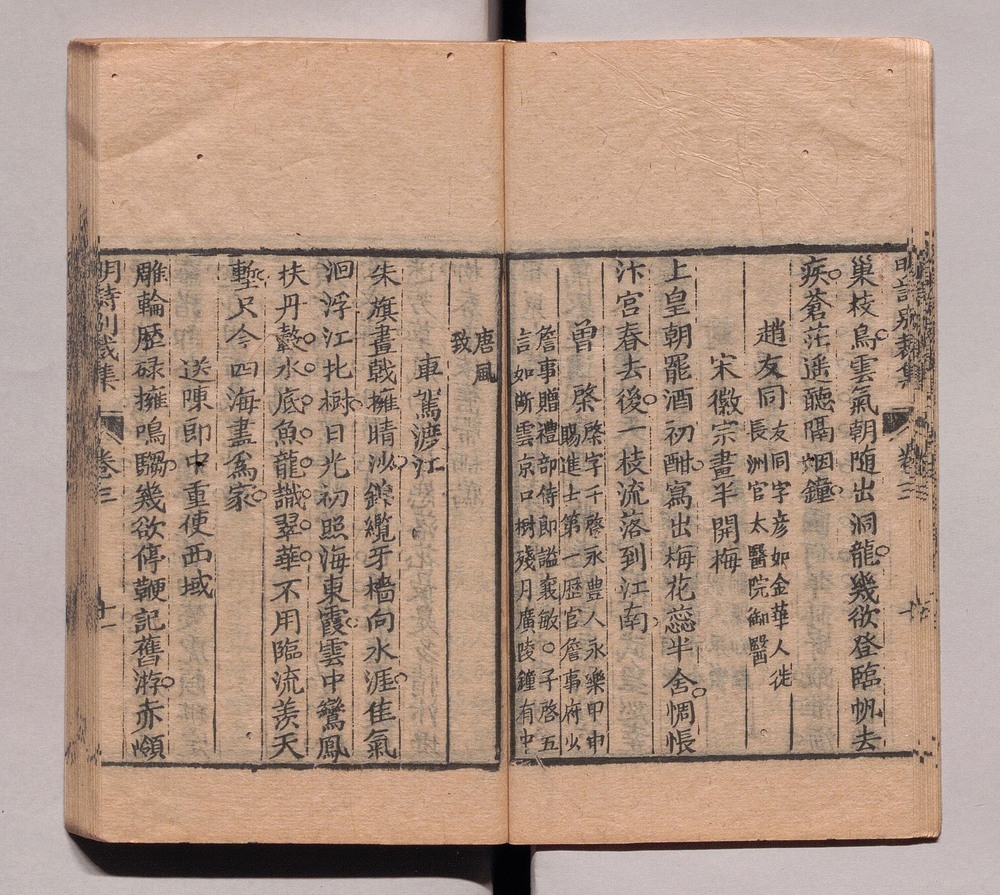 明詩別裁集 卷三 十
巢枝烏雲氣朝随出洞龍幾欲登臨帆去
疾蒼茫遥聽隔烟鐘
趙友同 友同字彦如金華人徙
長洲官太醫院御醫
宋徽宗畫半開梅
上皇朝罷酒初酣寫出梅花蕊半含惆悵
汴宫春去後一枝流落到江南
曾棨 棨字子啓永豐人永樂甲申
賜進士第一歴官詹事府少
詹事贈禮部侍郎謚襄敏○子啓五
言如斷雲京口樹殘月廣陵鐘有中
唐風
致
車駕渡江
朱旗畫戟擁晴沙錦纜牙檣向水涯佳氣
洄浮江北樹日光初照海東霞雲中鸞鳳
扶丹轂水底魚龍識翠華不用臨流羨天
塹只今四海盡爲家
送陳郎中重使西域
雕輪歴碌擁鳴騶幾欲停鞭記舊游赤嶺
明詩別裁集 卷三 十一